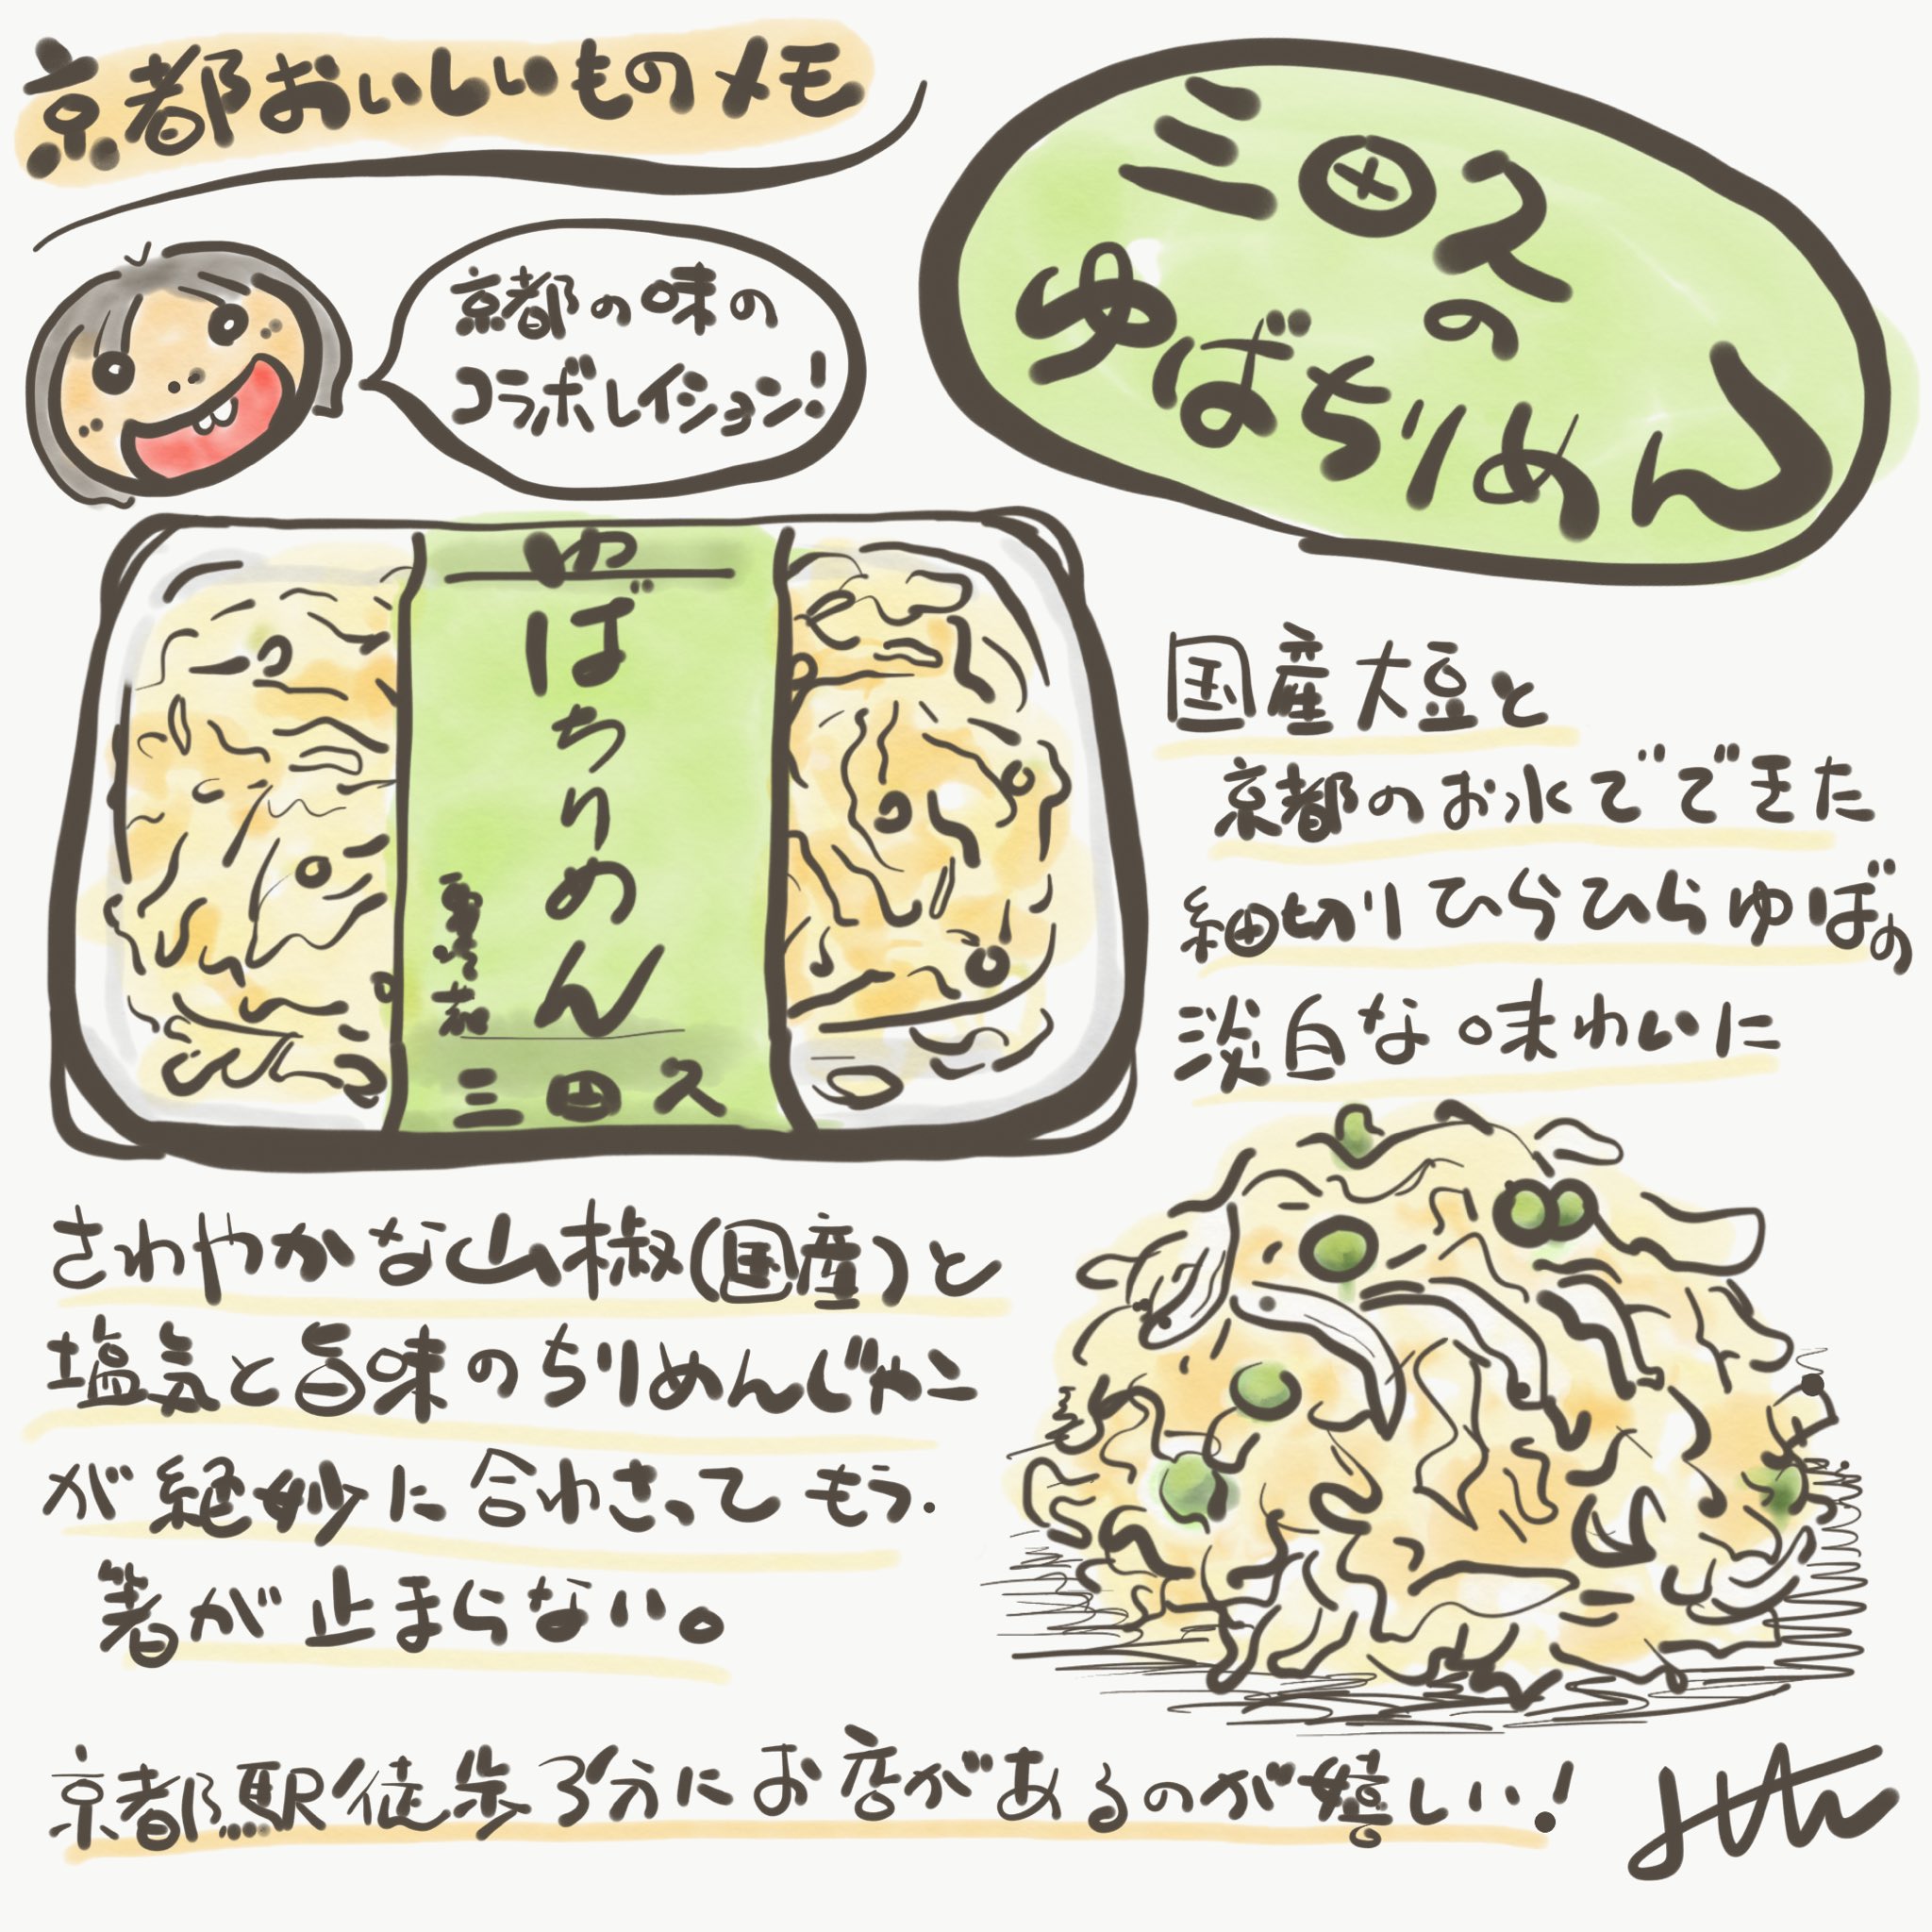 京都おいしいものメモ
三田久
の
ゆばちりめん
京都の味の
コラボレイション!
ゆばちりめん
三田久
国産大豆と
京都のお水でできた
細切りひらひらゆばの
淡白な味わいに
さわやかな山椒(国産)と
塩気と旨味のちりめんじゃこ
が絶妙に合わさってもう.
箸が止まらない。
京都駅徒歩3分にお店があるのが嬉しい!